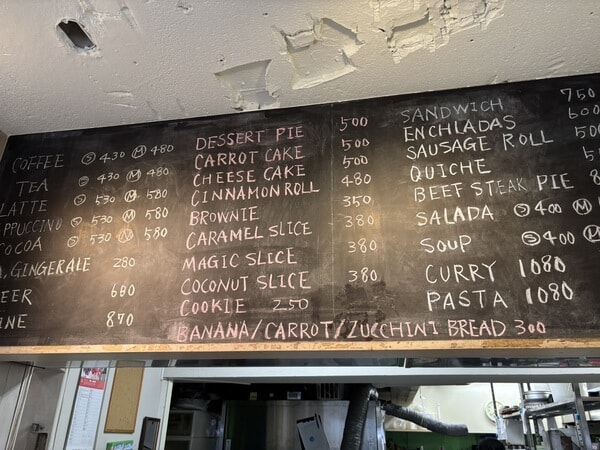 COFFEE Ⓢ 430 Ⓜ 480
TEA Ⓢ 430 Ⓜ 480
LATTE Ⓢ 530 Ⓜ 580
PPUCCINO Ⓢ 530 Ⓜ 580
COCOA Ⓢ 530 Ⓜ 580
A. GINGERALE 280
EER 680
INE 870
DESSERT PIE 500
CARROT CAKE 500
CHEESE CAKE 500
CINNAMON ROLL 480
BROWNIE 350
CARAMEL SLICE 380
MAGIC SLICE 380
COCONUT SLICE 380
COOKIE 250
BANANA/CARROT/ZUCCHINI BREAD 300
SANDWICH 750
ENCHLADAS 600
SAUSAGE ROLL 500
QUICHE
BEEF STEAK PIE
SALADA Ⓢ 400 Ⓜ
SOUP Ⓢ 400 Ⓜ
CURRY 1080
PASTA 1080